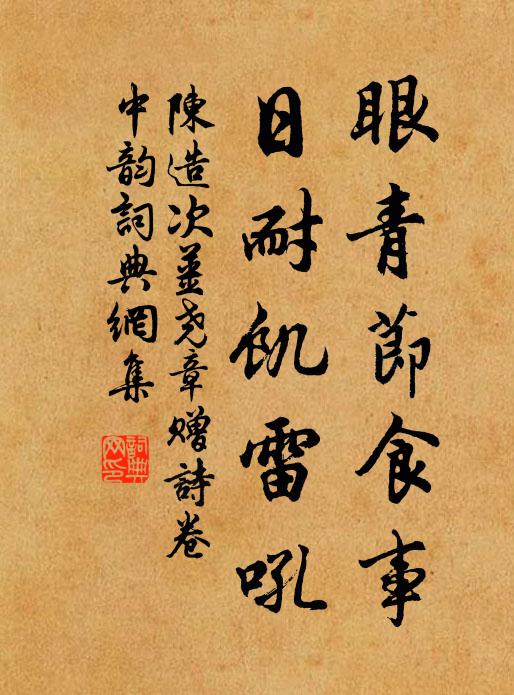 眼青節食事
日耐飢雷吼
陳造次姜尧章贈詩卷
中韵詞典網集
詞典网印